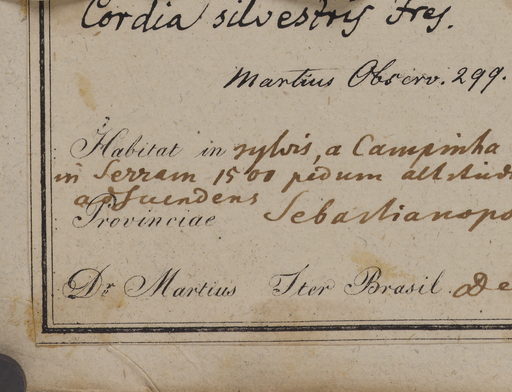 Cordia silvestris Fres.
Martius Observ. 299.
Habitat in sylvis, a Campinha
in Serram 1500 pedum altitud
adscendens
Provinciae Sebastianopo
Dr Martius Iter Brasil. De